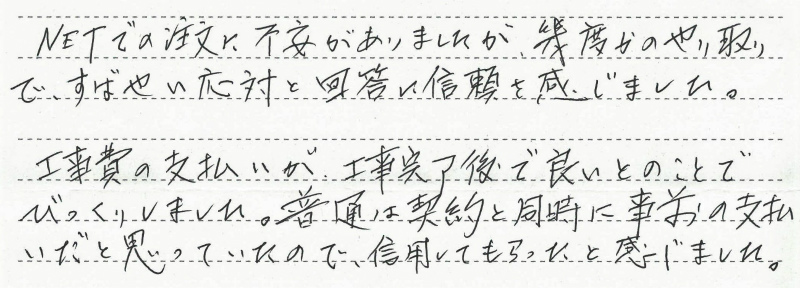 NETでの注文に不安がありましたが、幾度かのやり取り
で、すばやい応対と回答に信頼を感じました。
工事費の支払いが、工事完了後で良いとのことで
びっくりしました。普通は契約と同時に事前の支払
いだと思っていたので、信用してもらったと感じました。